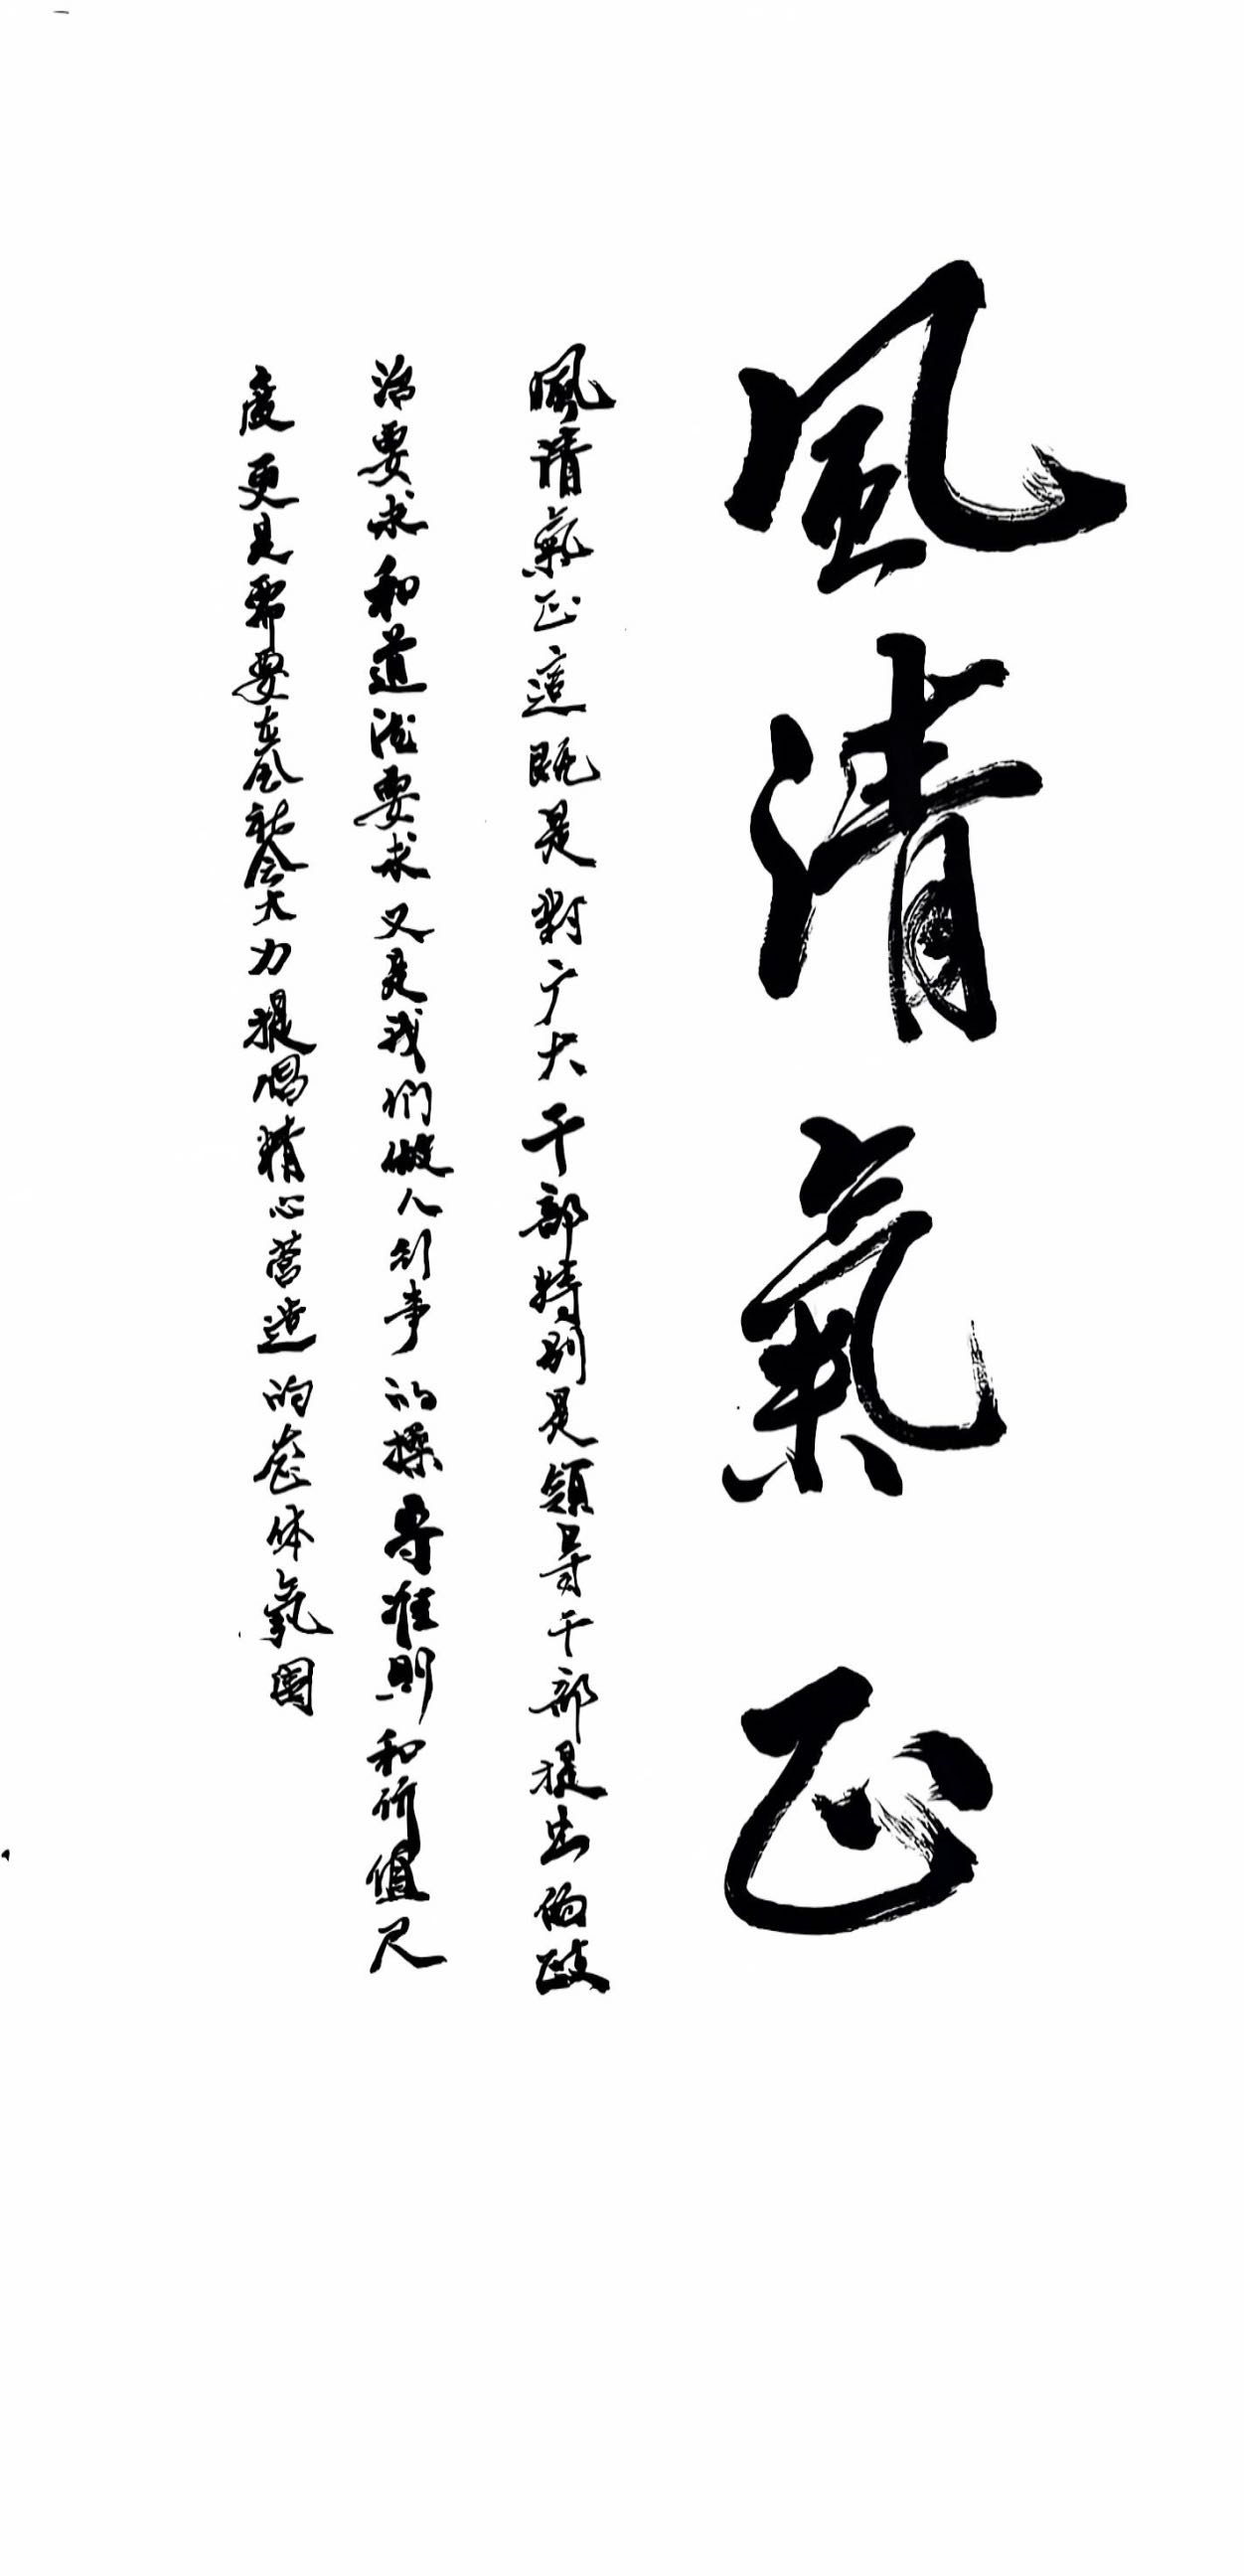 風清氣正
風清氣正這既是對广大干部特别是領导干部提出的政
治要求和道德要求又是我們做人到事的操守准則和价值尺
度更是需要在全社会大力提倡精心營造的整体氣圍